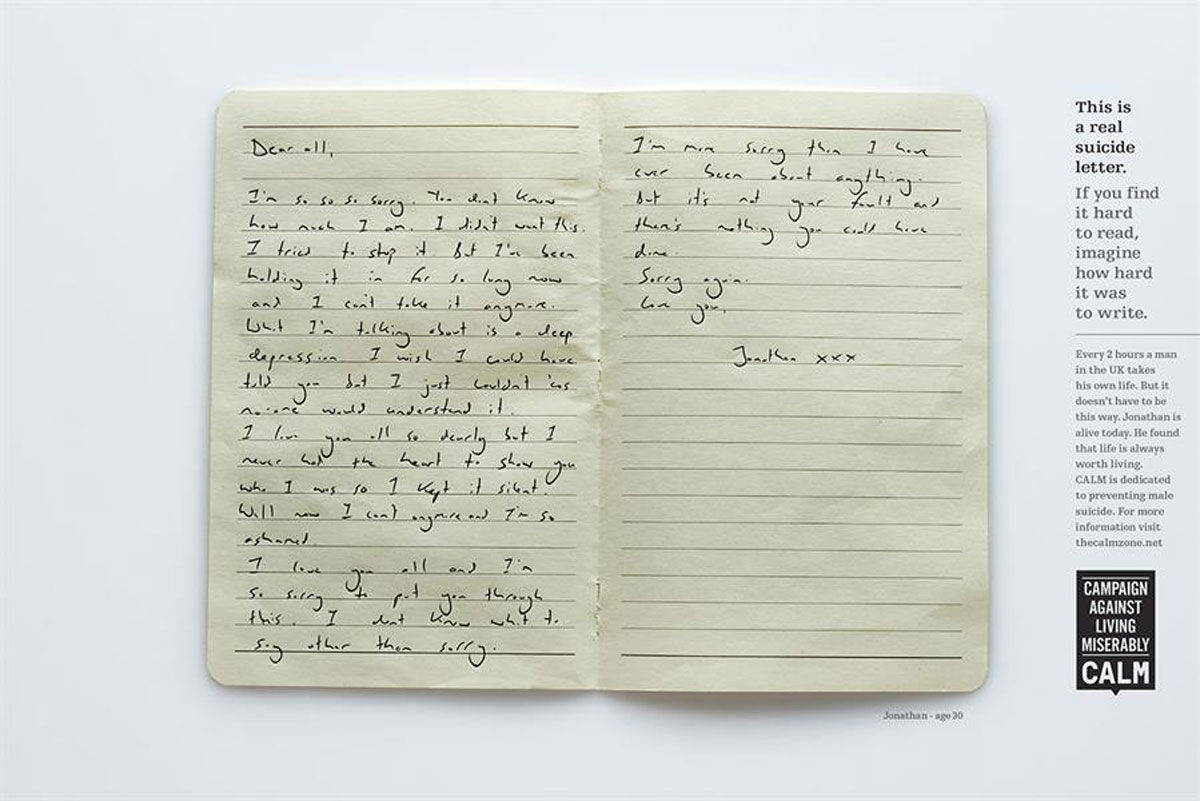 Dear all,
I'm so so so sorry. You don't know
how much I am. I didn't want this.
I tried to stop it. But I've been
holding it in for so long now
and I can't take it anymore.
What I'm talking about is a deep
depression. I wish I could have
told you but I just couldn't 'cos
no-one would understand it.
I love you all so dearly but I
never had the heart to show you
who I was so I kept it silent.
Well now I can't anymore and I'm so
ashamed.
I love you all and I'm
so sorry to put you through
this. I don't know what to
say other than sorry.
I'm more sorry than I have
ever been about anything.
But it's not your fault and
there's nothing you could have
done.
Sorry again.
Love you,
Jonathan xxx
Jonathan - age 30
This is
a real
suicide
letter.
If you find
it hard
to read,
imagine
how hard
it was
to write.
Every 2 hours a man
in the UK takes
his own life. But it
doesn't have to be
this way. Jonathan is
alive today. He found
that life is always
worth living.
CALM is dedicated
to preventing male
suicide. For more
information visit
thecalmzone.net
CAMPAIGN
AGAINST
LIVING
MISERABLY
CALM